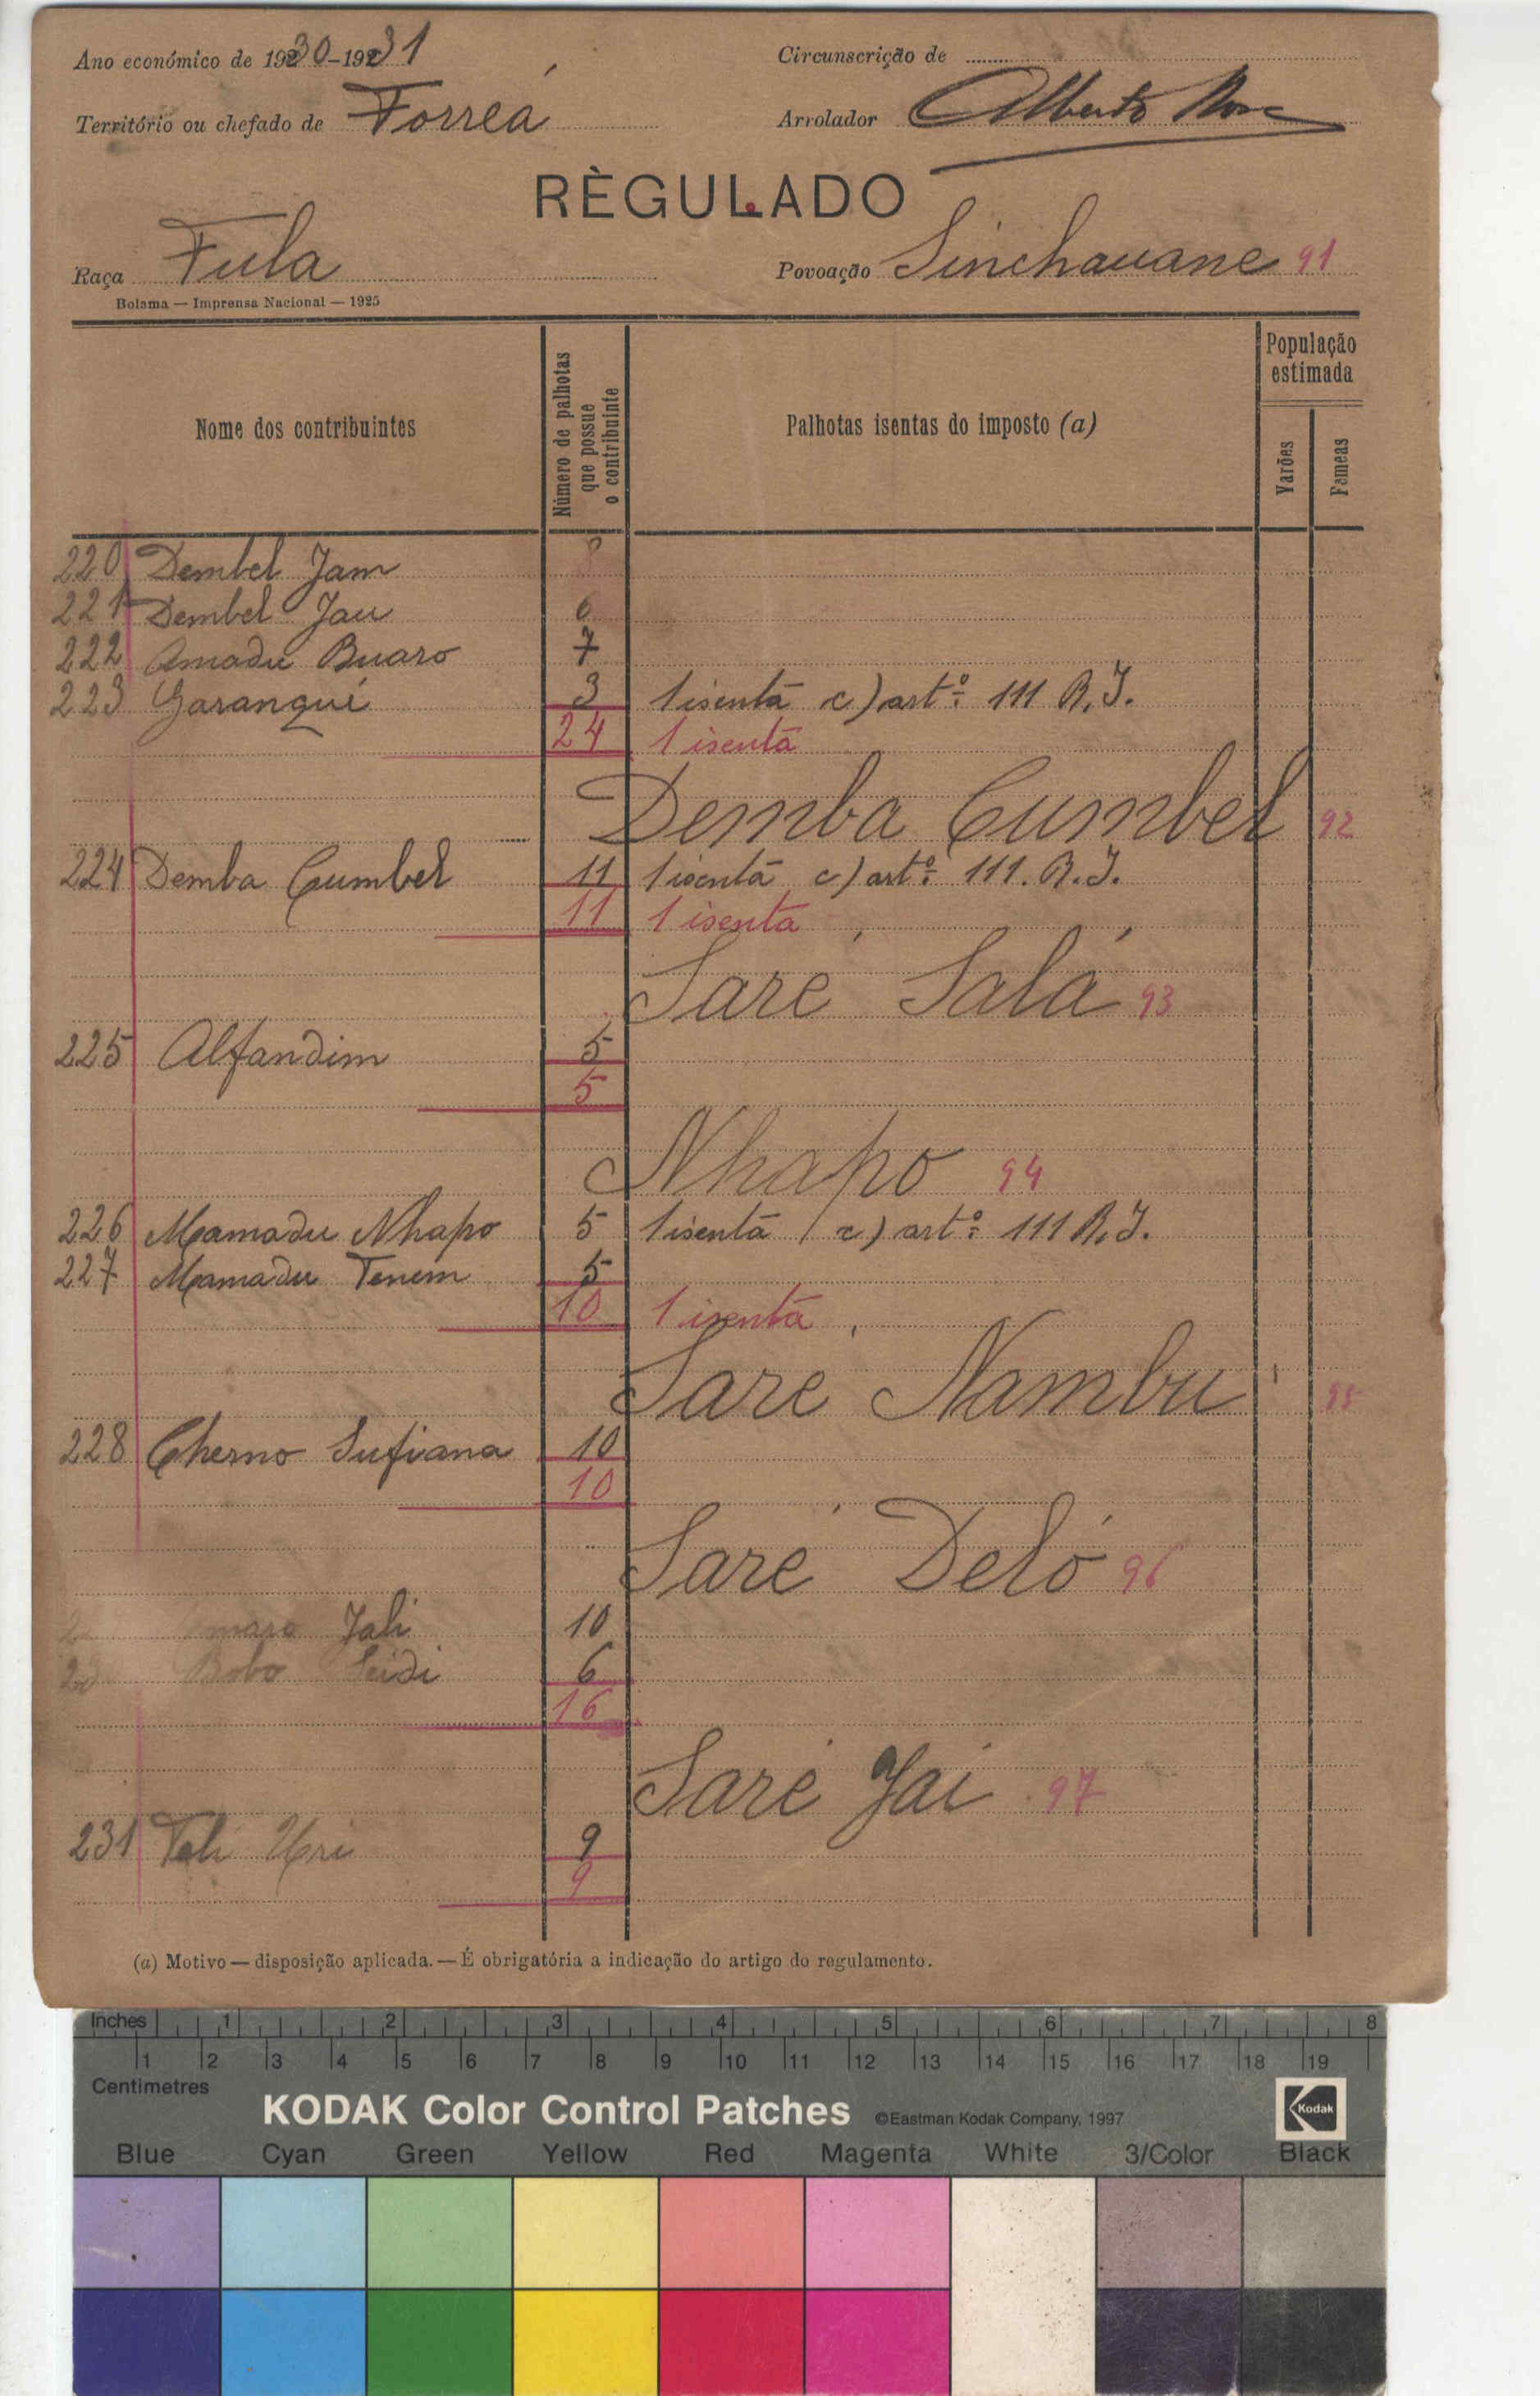 Ano económico de 1930-1931
Circunscrição de
Território ou chefado de Forreá
Arrolador Alberto
RÈGULADO
Raça Fula
Povoação Sinchauane 91
Bolama — Imprensa Nacional — 1925
Nome dos contribuintes
Número de palhotas que possue o contribuinte
Palhotas isentas do imposto (a)
População estimada
Varões
Fameas
220 Dembel Jam 8
221 Dembel Jau 6
222 Amadu Buaro 7
223 Garangui 3 1 isenta c) artº 111 R.I.
24 1 isenta
Demba Cumbel 92
224 Demba Cumbel 11 1 isenta c) artº 111. R.I.
11 1 isenta
Saré Salá 93
225 Alfandim 5
5
Nhapo 94
226 Mamadu Nhapo 5 1 isenta c) artº 111 R.I.
227 Mamadu Tenem 5
10 1 isenta
Saré Nambu 95
228 Cherno Sufiana 10
10
Saré Deló 96
Jali 10
Bobo Seidi 6
16
Saré Jai 97
231 Teli Uri 9
9
(a) Motivo — disposição aplicada. — É obrigatória a indicação do artigo do regulamento.
Inches 1 2 3 4 5 6 7 8
1 2 3 4 5 6 7 8 9 10 11 12 13 14 15 16 17 18 19
Centimetres
KODAK Color Control Patches ©Eastman Kodak Company, 1997 Kodak
Blue Cyan Green Yellow Red Magenta White 3/Color Black